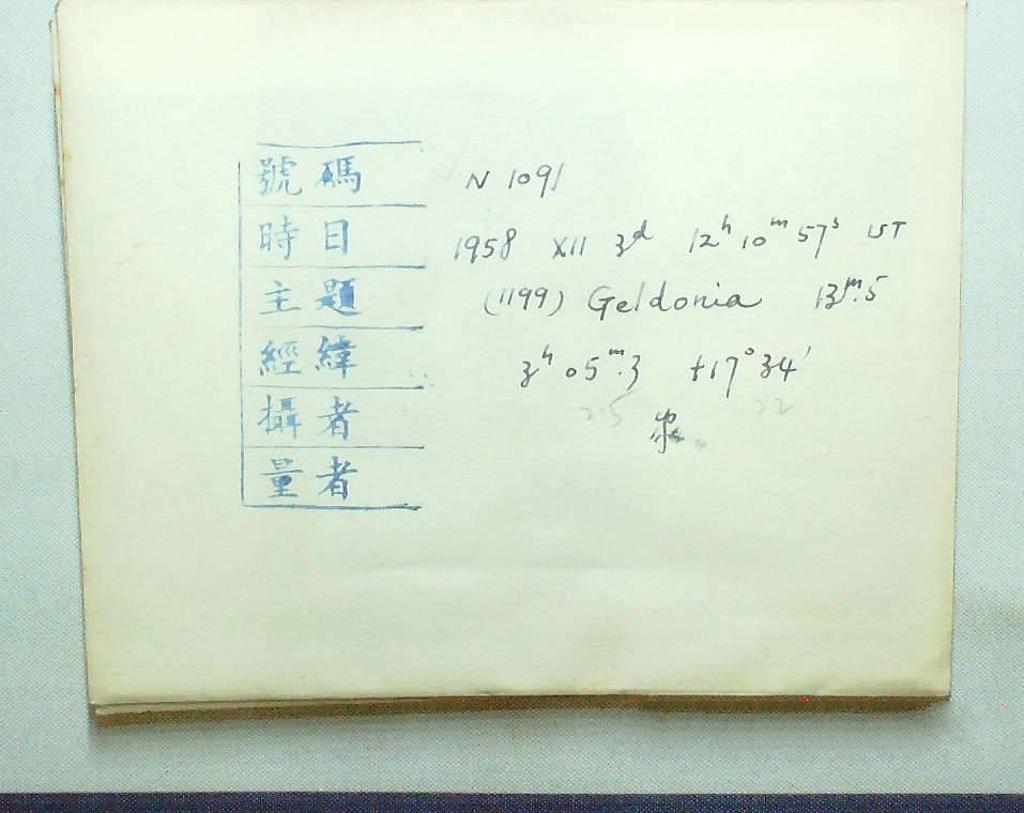 號碼 N 1091
時日 1958 XII 3d 12h 10m 57s UST
主題 (1199) Geldonia 13m.5
經緯 3h 05m.3 +17° 34'
215 22
攝者
量者